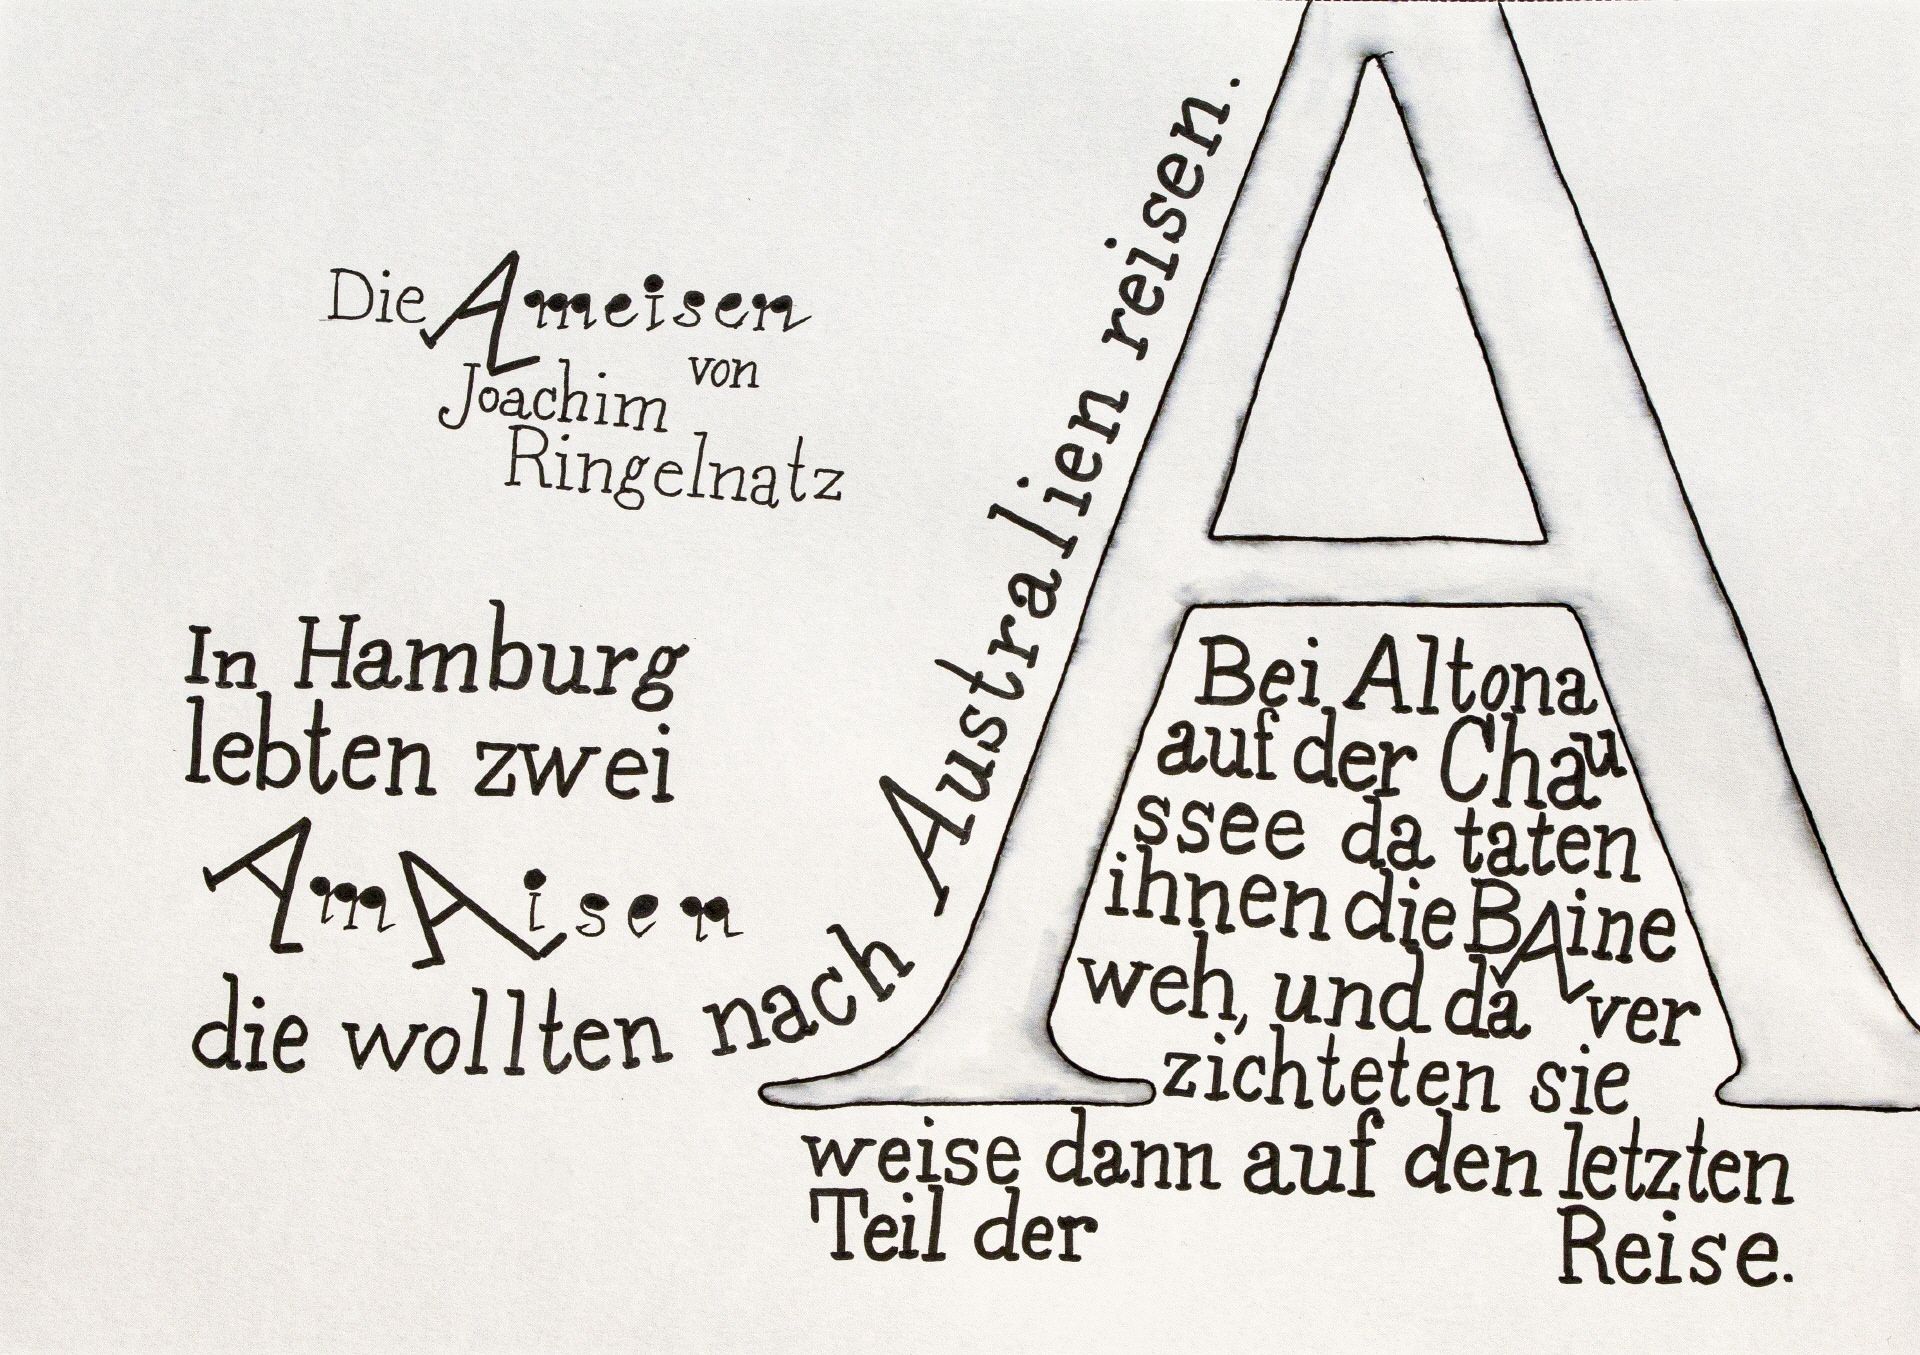 Die Ameisen
von
Joachim
Ringelnatz
In Hamburg
lebten zwei
AmAisen
die wollten nach Australien reisen.
Bei Altona
auf der Chau
ssee da taten
ihnen die BAine
weh, und da ver
zichteten sie
weise dann auf den letzten
Teil der Reise.